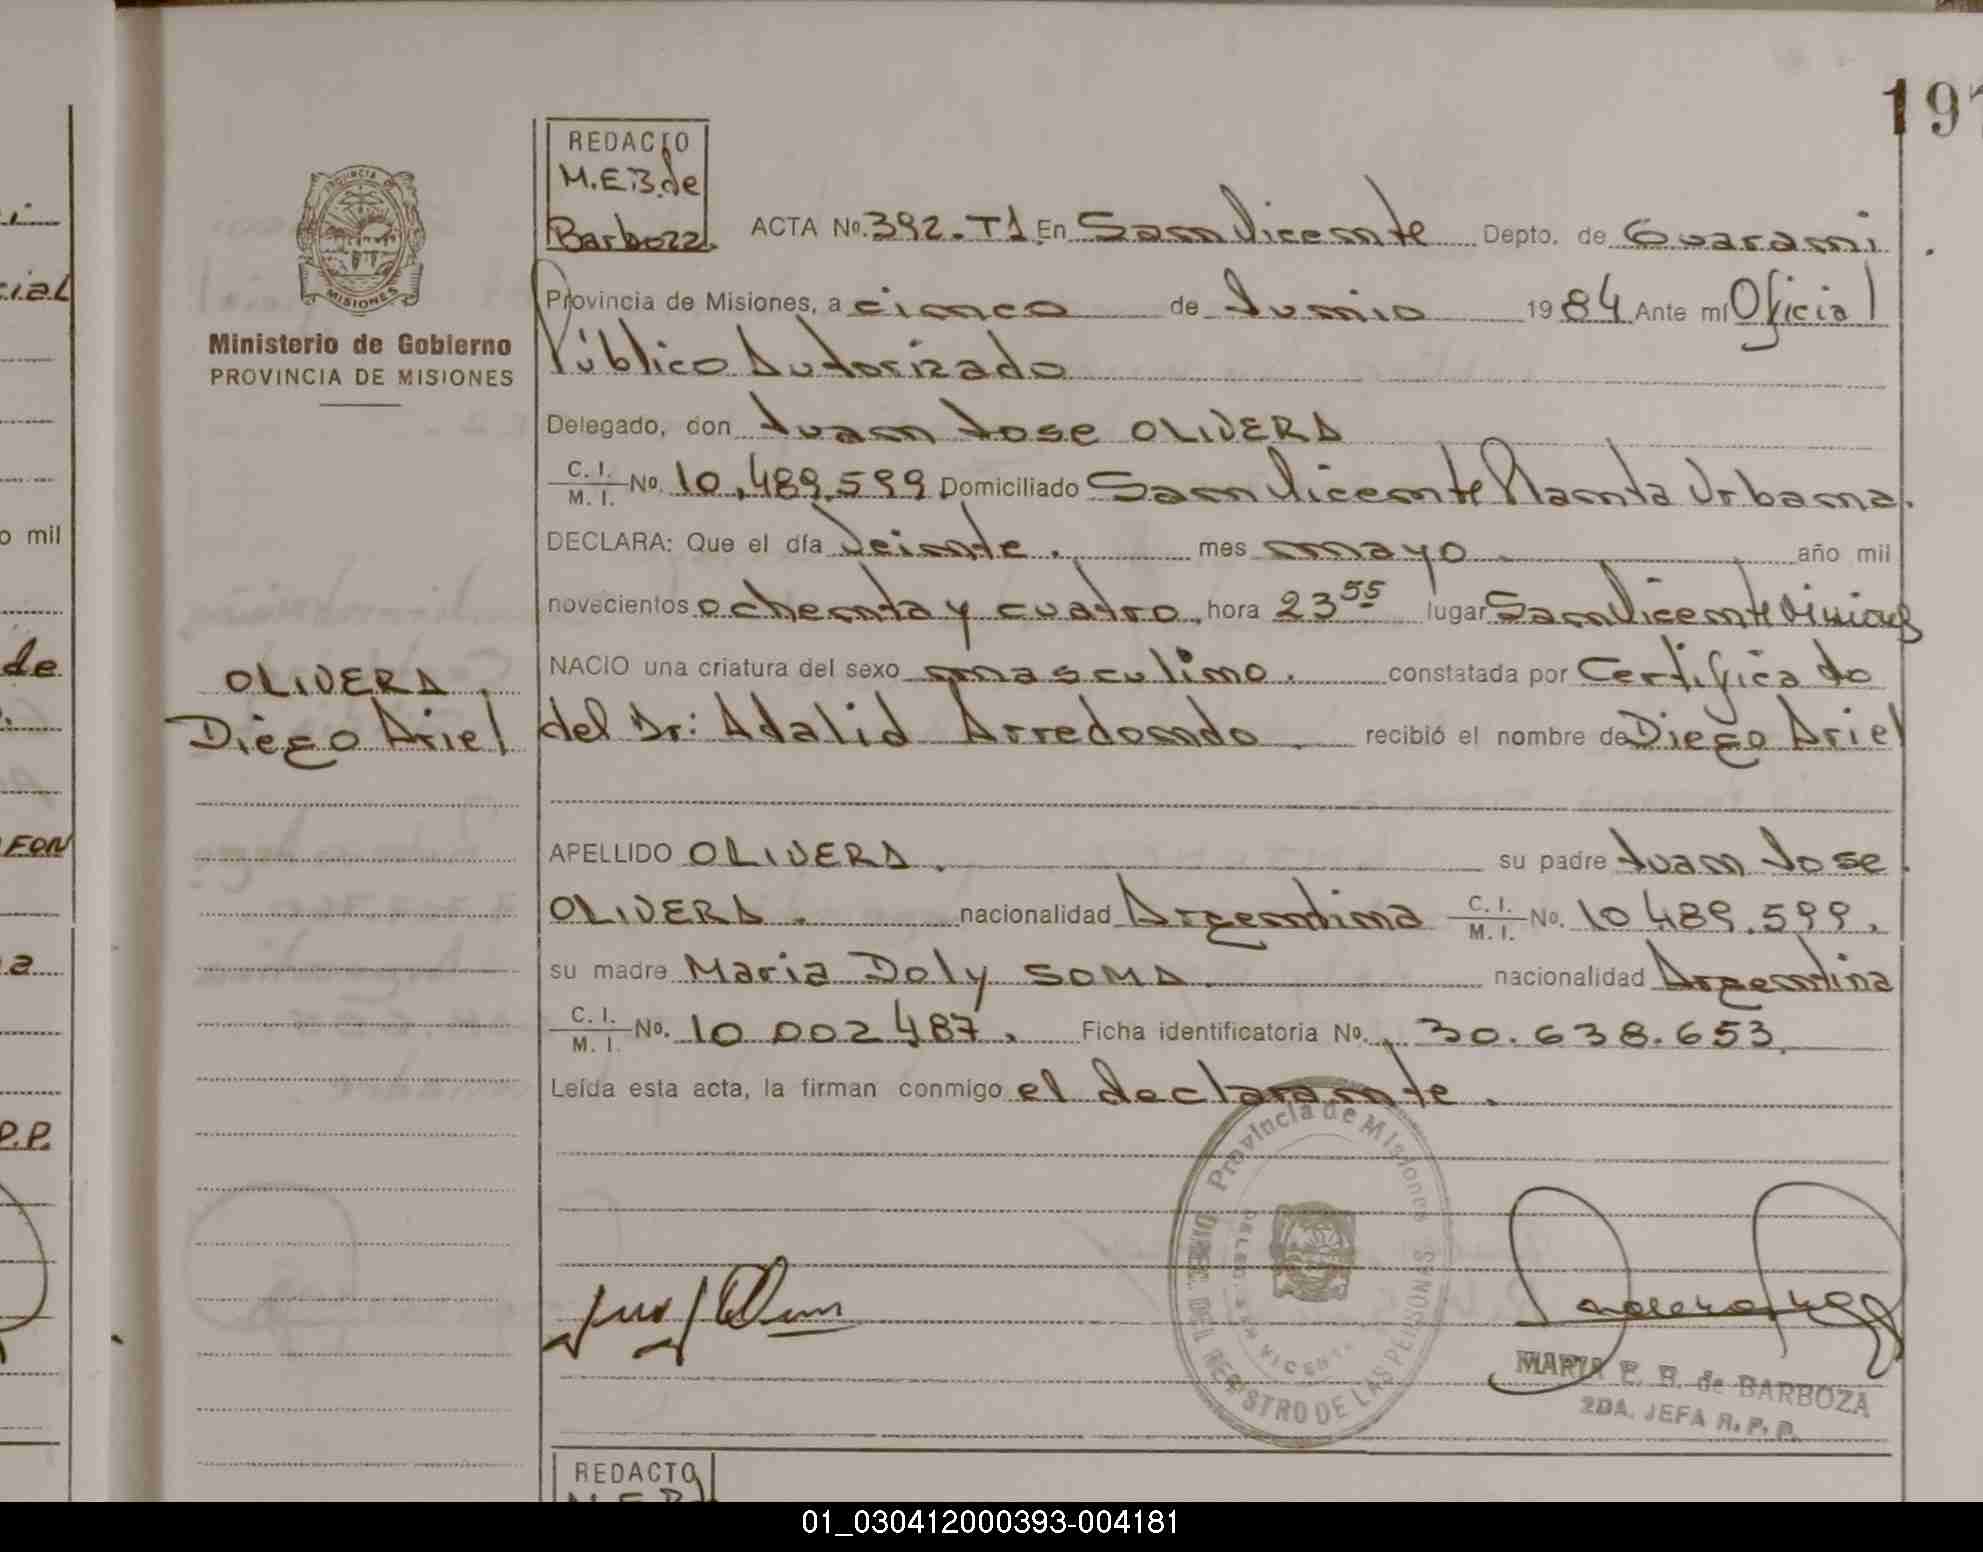 197
REDACTO
M.E.B. de
Barboza.
PROVINCIA DE
MISIONES
Ministerio de Gobierno
PROVINCIA DE MISIONES
ACTA No. 392. T1 En San Vicente Depto. de Guarani
Provincia de Misiones, a cinco de Junio 1984 Ante mí Oficial
Público Autorizado
Delegado, don Juan Jose OLIVERA
C. I. / M. I. No. 10.489.599 Domiciliado San Vicente Planta Urbana.
DECLARA: Que el día Veinte. mes mayo. año mil
novecientos ochenta y cuatro, hora 23 55 lugar San Vicente Misiones
NACIO una criatura del sexo masculino. constatada por Certificado
del Dr: Adalid Arredondo. recibió el nombre de Diego Ariel
OLIVERA.
Diego Ariel
APELLIDO OLIVERA. su padre Juan Jose
OLIVERA. nacionalidad Argentina C. I. / M. I. No. 10 489.599.
su madre Maria Doly SOMA. nacionalidad Argentina
C. I. / M. I. No. 10 002 487. Ficha identificatoria No. 30.638.653.
Leída esta acta, la firman conmigo el declarante.
Provincia de Misiones
DEL REGISTRO DE LAS PERSONAS
MARIA E. B. de BARBOZA
2DA. JEFA R. P. P.
REDACTO
M.E.B.
mil
cial
de
a
P.P.
01_030412000393-004181